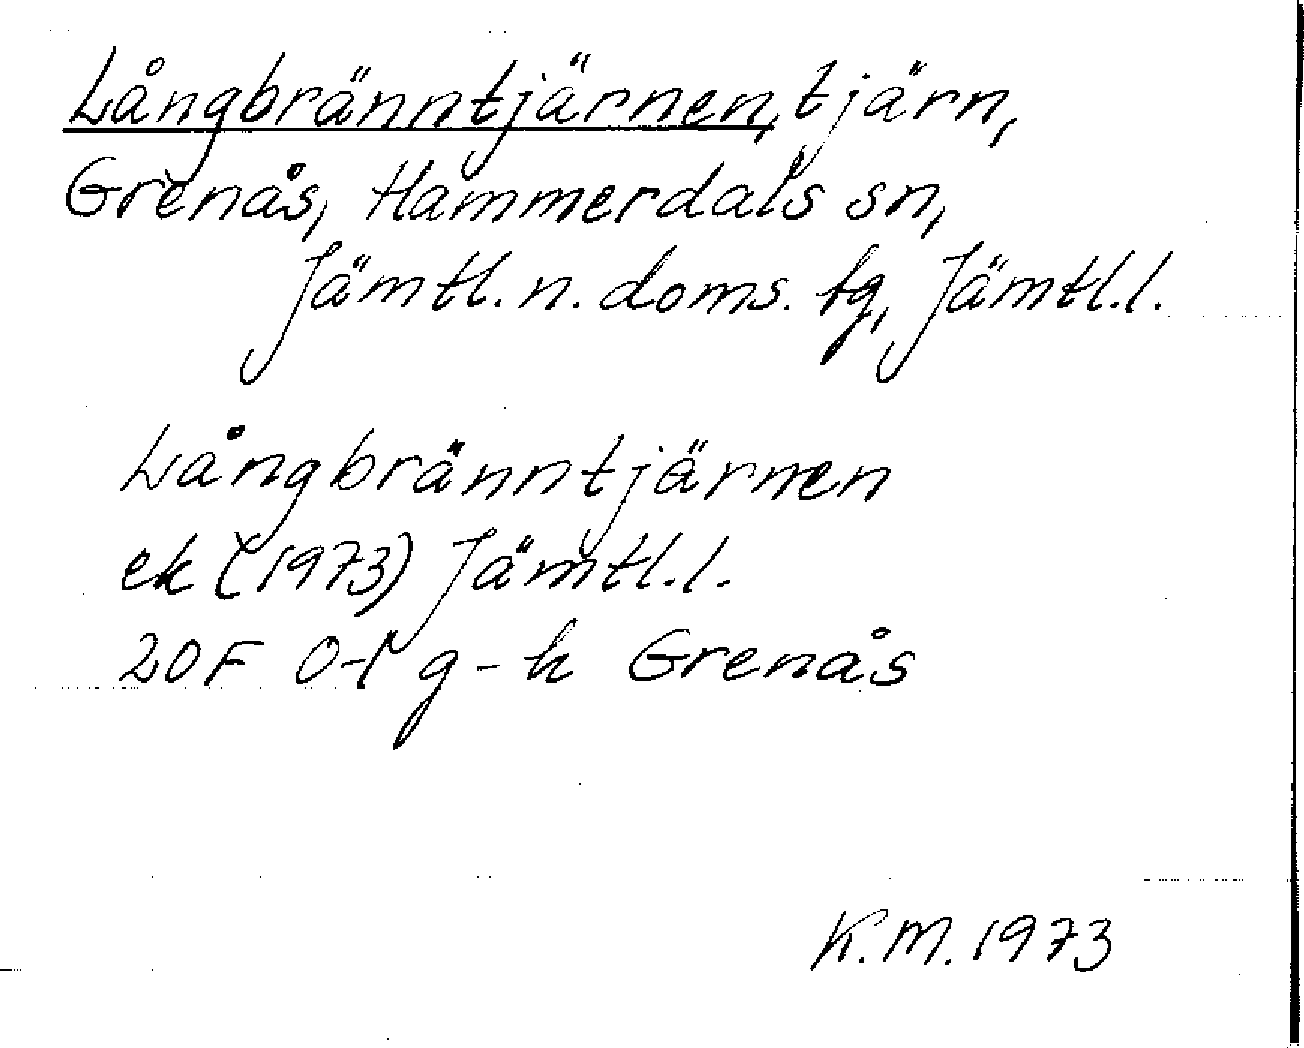 Långbränntjärnen, tjärn,
Grenås, Hammerdals sn,
Jämtl. n. doms. tg, Jämtl. l.
Långbränntjärnen
ek (1973) Jämtl. l.
20F 0-1 g-h Grenås
K.M. 1973